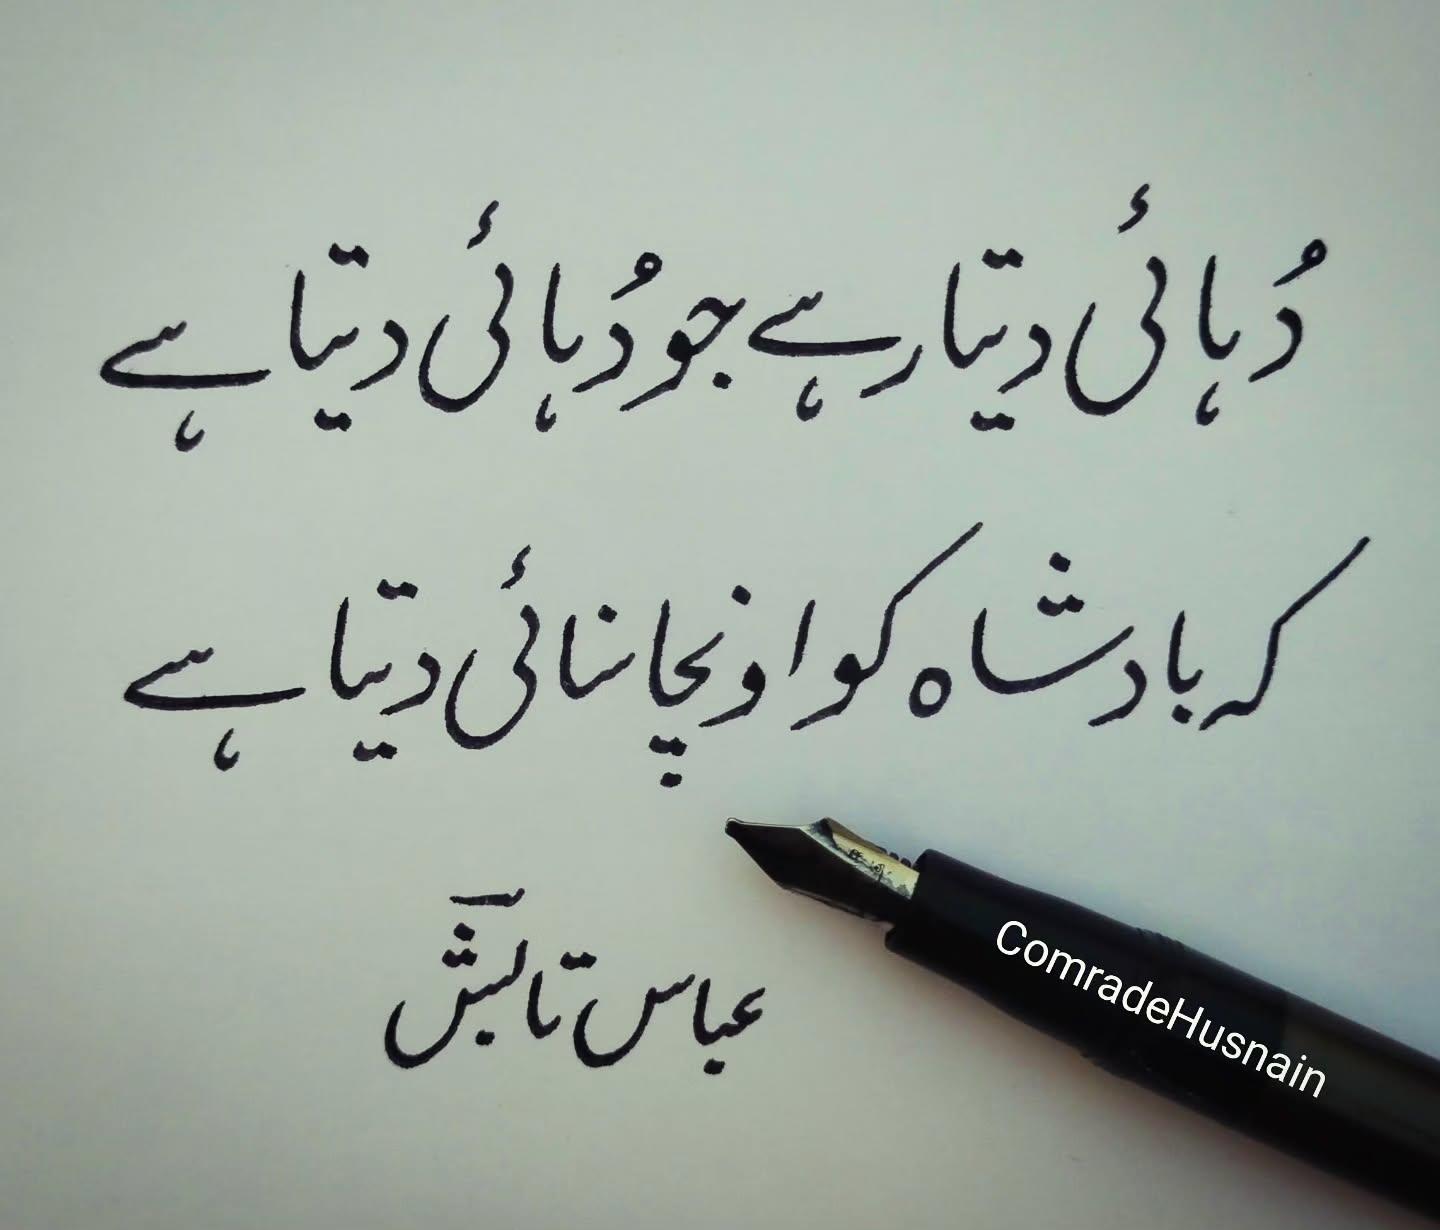 دُہائی دیتا رہے جو دُہائی دیتا ہے
کہ بادشاہ کو اونچا سنائی دیتا ہے
عباس تابش
ComradeHusnain